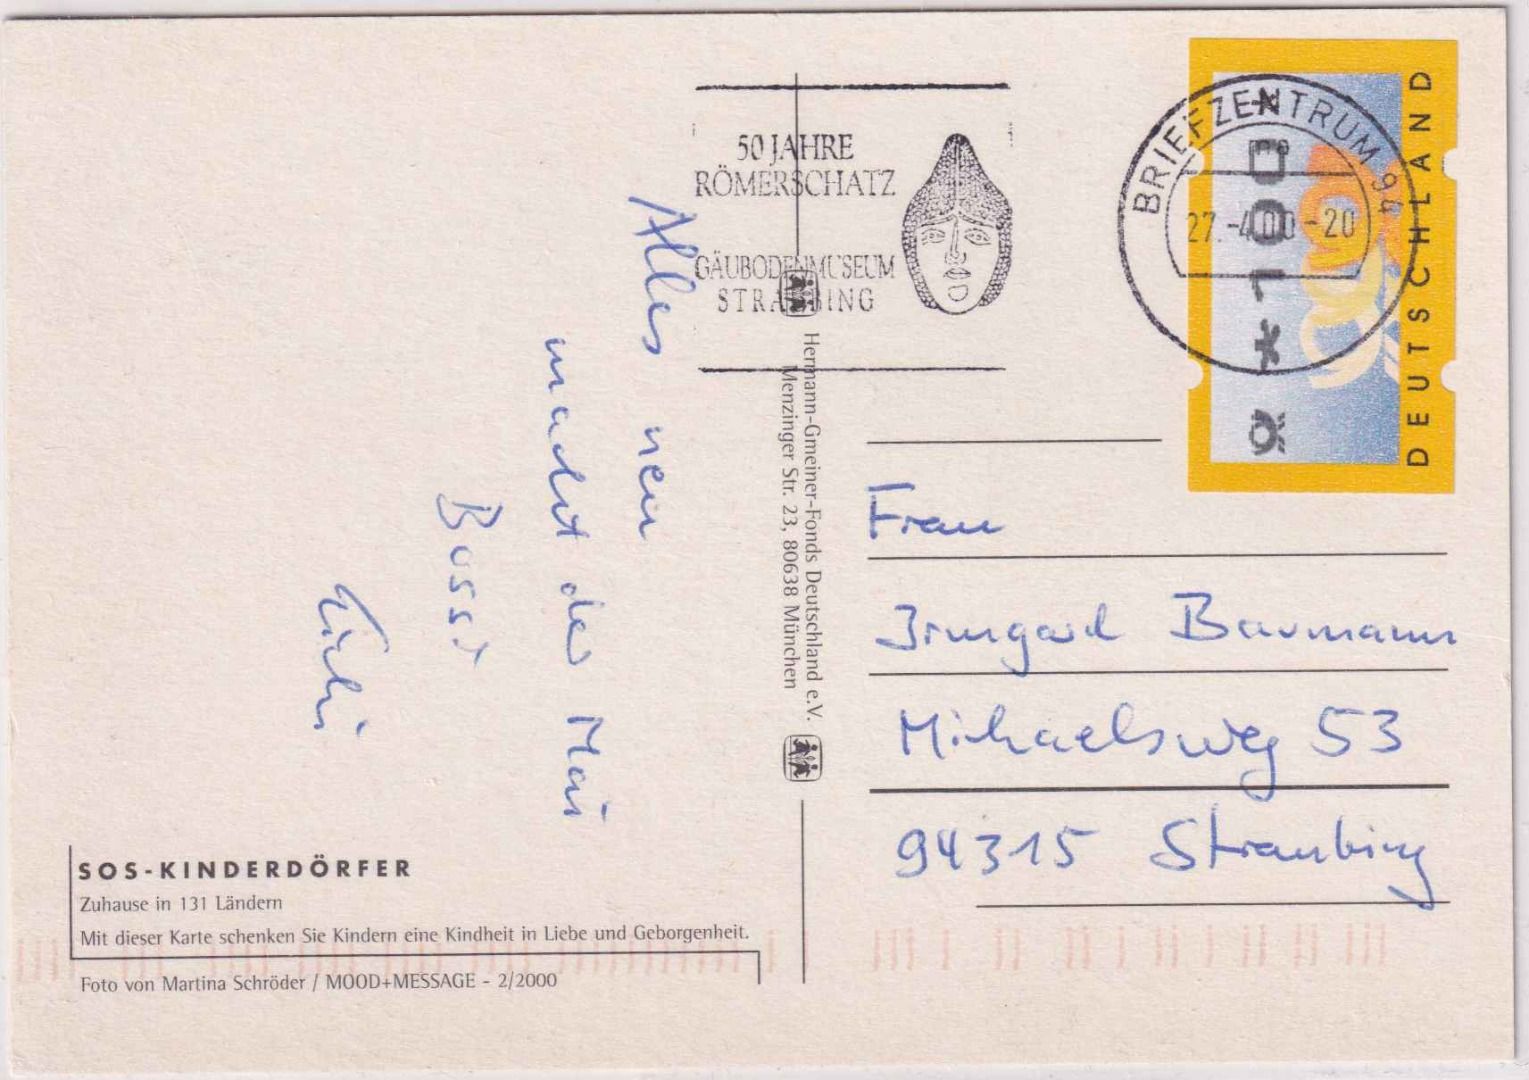 50 JAHRE
RÖMERSCHATZ
GÄUBODENMUSEUM
STRAUBING
BRIEFZENTRUM 94
27.-4.00-20
DEUTSCHLAND
*100
Alles neu
macht der Mai
Hermann-Gmeiner-Fonds Deutschland e.V.
Menzinger Str. 23, 80638 München
Frau
Irmgard Baumann
Michaelsweg 53
94315 Straubing
SOS-KINDERDÖRFER
Zuhause in 131 Ländern
Mit dieser Karte schenken Sie Kindern eine Kindheit in Liebe und Geborgenheit.
Foto von Martina Schröder / MOOD+MESSAGE - 2/2000